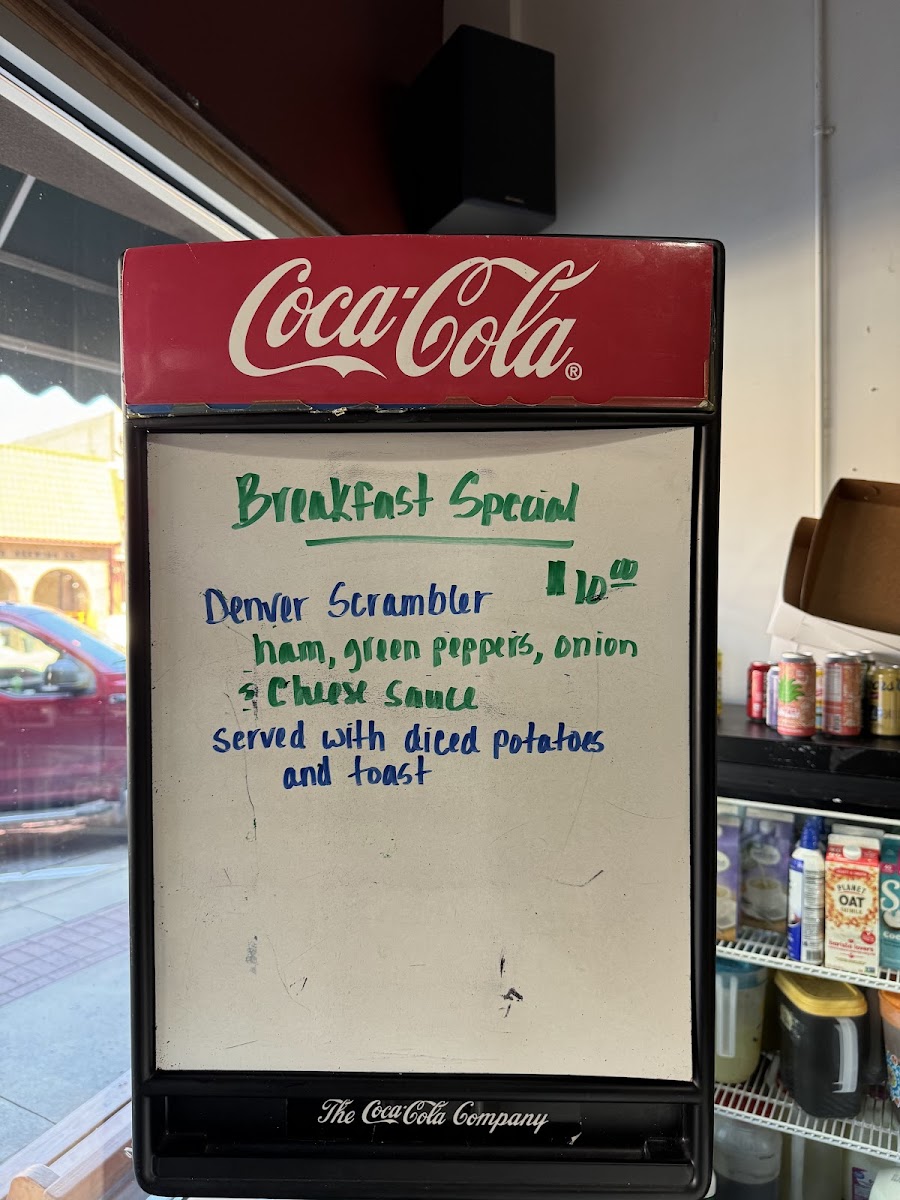 Coca-Cola®
Breakfast Special
$10.00
Denver Scrambler
ham, green peppers, onion
& Cheese sauce
served with diced potatoes
and toast
The Coca-Cola Company
PLANET
OAT